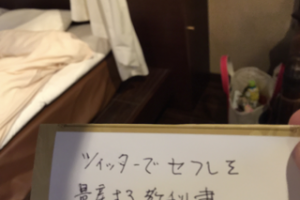 ツイッターでセフレを
量産する教科書